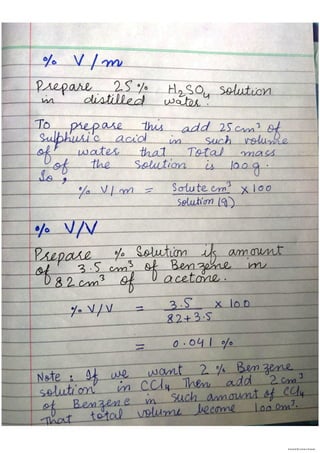 % V/m
Prepare 25% H₂SO₄ solution
in distilled water.
To prepare this add 25 cm³ of
sulphuric acid in such volume
of water that Total mass
of the solution is 100g.
So,
% V/m = Solute cm³ / solution (g) × 100
% V/V
Prepare % Solution if amount
of 3.5 cm³ of Benzene in
82 cm³ of acetone.
% V/V = 3.5 / 82+3.5 × 100
= 0.041 %
Note: If we want 2% Benzene
solution in CCl₄ Then add 2 cm³
of Benzene in such amount of CCl₄
That total volume become 100 cm³.